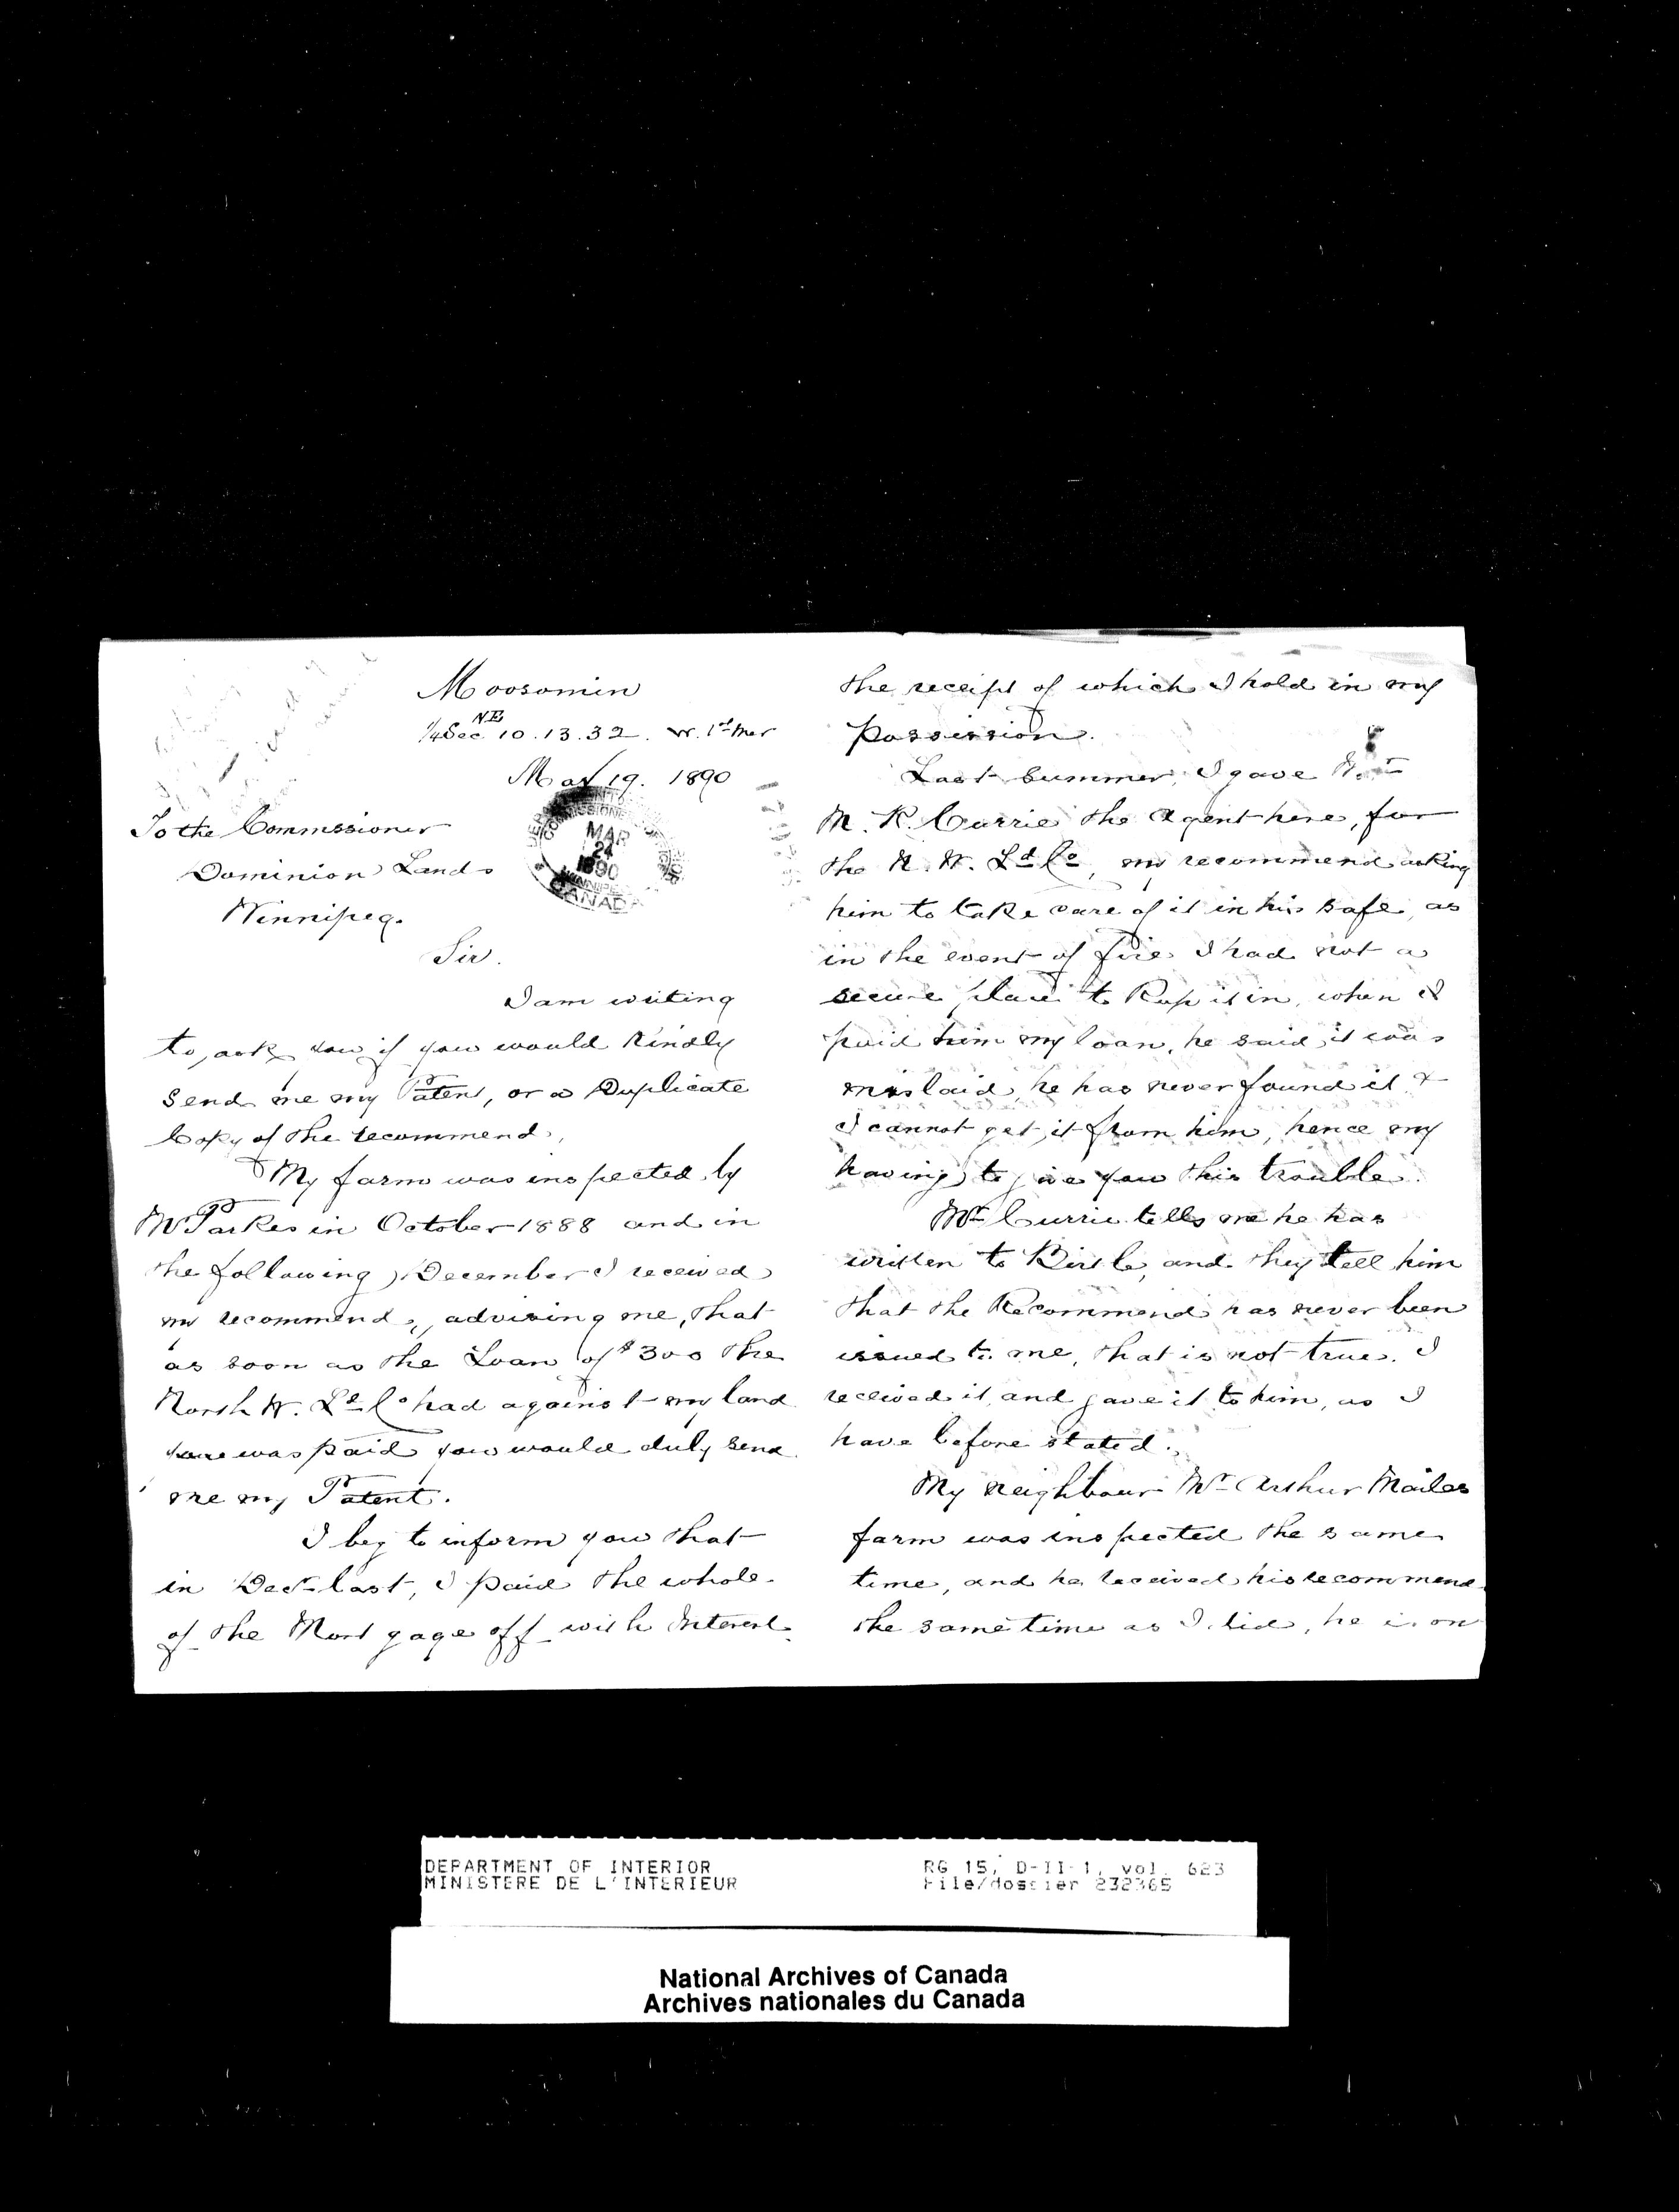 Moosomin
N.E.
1/4 Sec. 10. 13. 32. W. 1st Mer
Mar 19. 1890
To the Commssioner
Dominion Lands
Winnipeg.
Sir.
I am writing
to ask you if you would kindly
send me my Patent, or a Duplicate
Copy of the recommend,
My farm was inspected by
Mr Parkes in October 1888 and in
the following December I received
my recommend, advising me, that
as soon as the Loan of $300 the
North W. Ld Co had against my land
was paid you would duly send
me my Patent.
I beg to inform you that
in Decr last, I paid the whole
of the Mortgage off with Interest
the receipt of which I hold in my
possession.
Last Summer, I gave Mr
M. R. Currie the Agent here, for
the N. W. Ld Co, my recommend asking
him to take care of it in his safe, as
in the event of fire I had not a
secure place to Keep it in, when I
paid him my loan, he said it was
mislaid, he has never found it &
I cannot get it from him, hence my
having to give you this trouble.
Mr Currie tells me he has
written to Birtle, and they tell him
that the Recommend has never been
issued to me, that is not true. I
received it, and gave it to him, as I
have before stated.
My neighbour Mr Arthur Mailes
farm was inspected the same
time, and he received his recommend
the same time as I did, he is on
MAR
24
1890
CANADA
DEPARTMENT OF INTERIOR
MINISTERE DE L'INTERIEUR
RG 15, D-II-1, vol. 623
File/dossier 232365
National Archives of Canada
Archives nationales du Canada